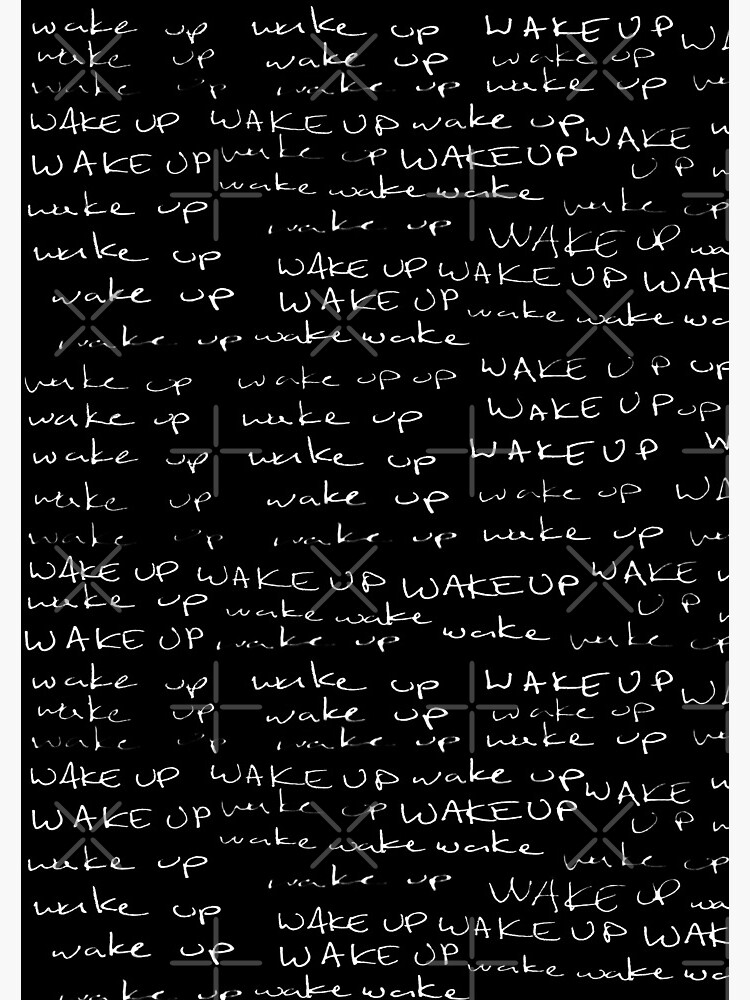 wake up wake up WAKE UP WA
wake up wake up wake up
wake up wake up wake up
WAKE UP WAKE UP wake up WAKE
WAKE UP wake up WAKE UP UP
wake wake wake
wake up wake up wake up
wake up WAKE UP wa
WAKE UP WAKE UP WAK
wake up WAKE UP wake wake wa
wake up wake wake
wake up wake up up WAKE UP up
wake up wake up WAKE UP up
wake up wake up WAKE UP W
wake up wake up wake up WA
wake up wake up wake up
WAKE UP WAKE UP WAKE UP WAKE
wake up wake wake UP
WAKE UP wake up wake wake up
wake up wake up WAKE UP WA
wake up wake up wake up
wake up wake up wake up
WAKE UP WAKE UP wake up WAKE
WAKE UP wake up WAKE UP UP
wake wake wake
wake up wake up
wake up
wake up WAKE UP wa
WAKE UP WAKE UP WAK
wake up WAKE UP wake wake wa
wake up wake wake